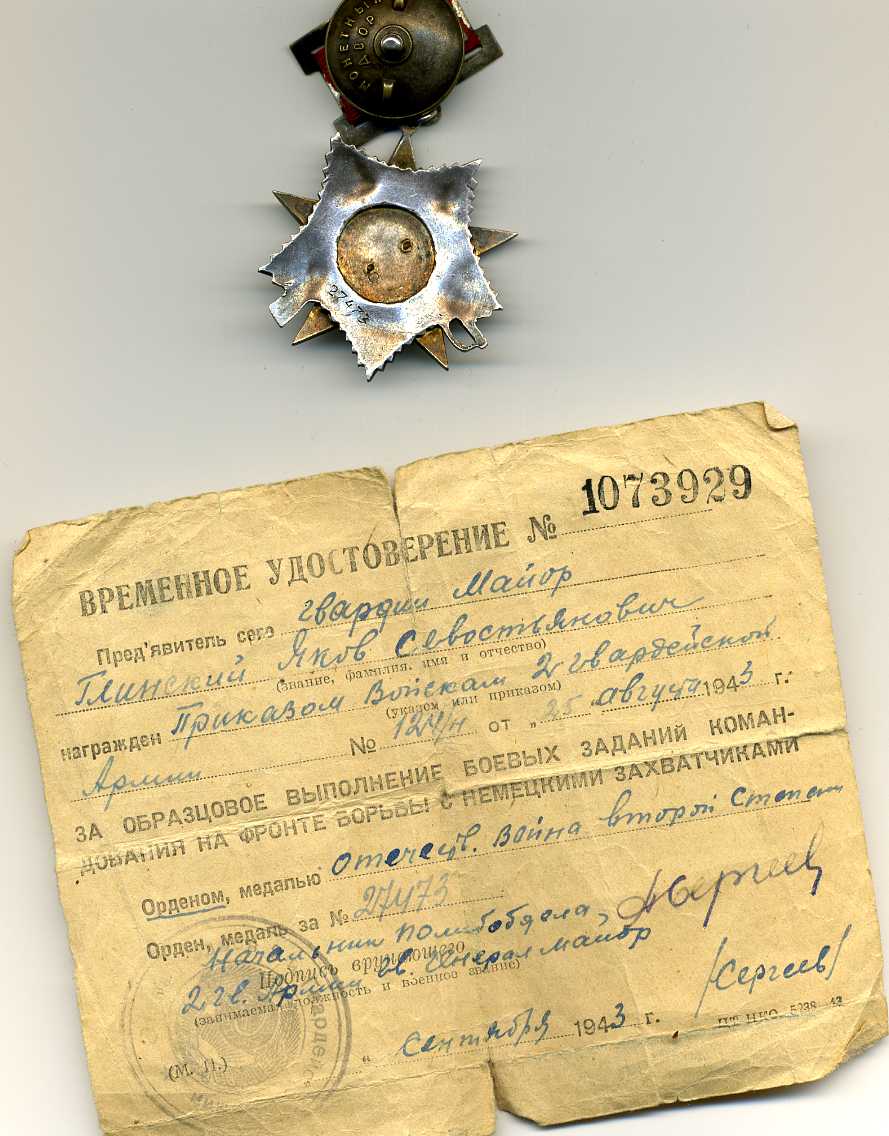 МОНЕТНЫЙ
ДВОР
27473
ВРЕМЕННОЕ УДОСТОВЕРЕНИЕ № 1073929
Пред'явитель сего гвардии Майор
Глинский Яков Севостьянович
(звание, фамилия, имя и отчество)
награжден Приказом Войскам 2 гвардейской
(указом или приказом)
Армии № 124/н от „25 августа 1943 г.
ЗА ОБРАЗЦОВОЕ ВЫПОЛНЕНИЕ БОЕВЫХ ЗАДАНИЙ КОМАН-
ДОВАНИЯ НА ФРОНТЕ БОРЬБЫ С НЕМЕЦКИМИ ЗАХВАТЧИКАМИ
Орденом, медалью Отечеств. Война второй Степени
Орден, медаль за № 27473
Начальник политотдела,
Подпись вручающего
2 гв. Армии гв. Генерал майор
(занимаемая должность и военное звание)
/Сергеев/
(М. П.) „ Сентября 1943 г.